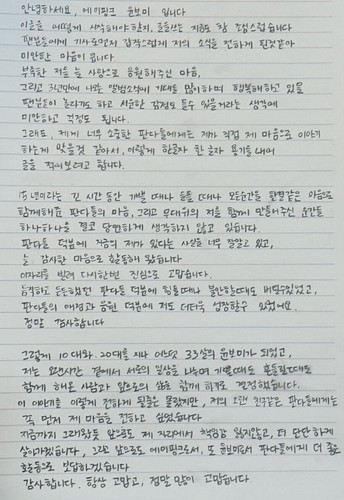 안녕하세요, 에이핑크 윤보미 입니다
이글을 어떻게 시작해야할지, 글을쓰는 지금도 참 조심스럽습니다
팬분들에게 기사로먼저 갑작스럽게 저의 소식을 전하게 된것같아
미안한 마음이 큽니다
부족한 저를 늘 사랑으로 응원해주신 마음,
그리고 오랜만에 나온 앨범소식에 기대를 많이하며 행복해하고 있을
팬분들이 놀라기도 하고 서운한 감정도 들수 있을거라는 생각에
미안하고 걱정도 됩니다.
그래도, 제게 너무 소중한 판다들에게는 제가 직접 제 마음으로 이야기
하는게 맞을것 같아서, 이렇게 한글자 한 글자 용기를 내어
글을 적어보려고 합니다.
15년이라는 긴 시간 동안 기쁠 때나 힘들 때나 모든순간을 한결같은 마음으로
함께해준 판다들의 마음, 그리고 무대위의 저를 함께 만들어주신 순간들
하나하나를 결코 당연하게 생각하지 않고 있습니다.
판다들 덕분에 지금의 제가 있다는 사실을 너무 잘알고 있고,
늘 감사한 마음으로 활동해 왔습니다
이자리를 빌려 다시한번 진심으로 고맙습니다.
묵직하고 든든했던 판다들 덕분에 힘들때나 불안할때도 버틸수있었고,
판다들의 애정과 응원 덕분에 저도 더더욱 성장할수 있었어요.
정말 감사합니다
그렇게 10대와 20대를 지나 어느덧 33살의 윤보미가 되었고,
저는 오랜시간 곁에서 서로의 일상을 나누며 기쁠때도 흔들릴때도
함께 해온 사람과 앞으로의 삶을 함께 하기로 결정했습니다.
이 이야기를 이렇게 전하게 될줄은 몰랐지만, 저의 오랜 친구같은 판다들에게는
꼭 먼저 제 마음을 전하고 싶었습니다
지금까지 그래왔듯 앞으로도 제 자리에서 책임감 잃지않고, 더 단단하게
살아가겠습니다, 그리고 앞으로도 에이핑크로서, 또 윤보미로서 판다들에게 더 좋은
활동들로 보답하겠습니다
감사합니다. 항상 고맙고, 정말 많이 고맙습니다